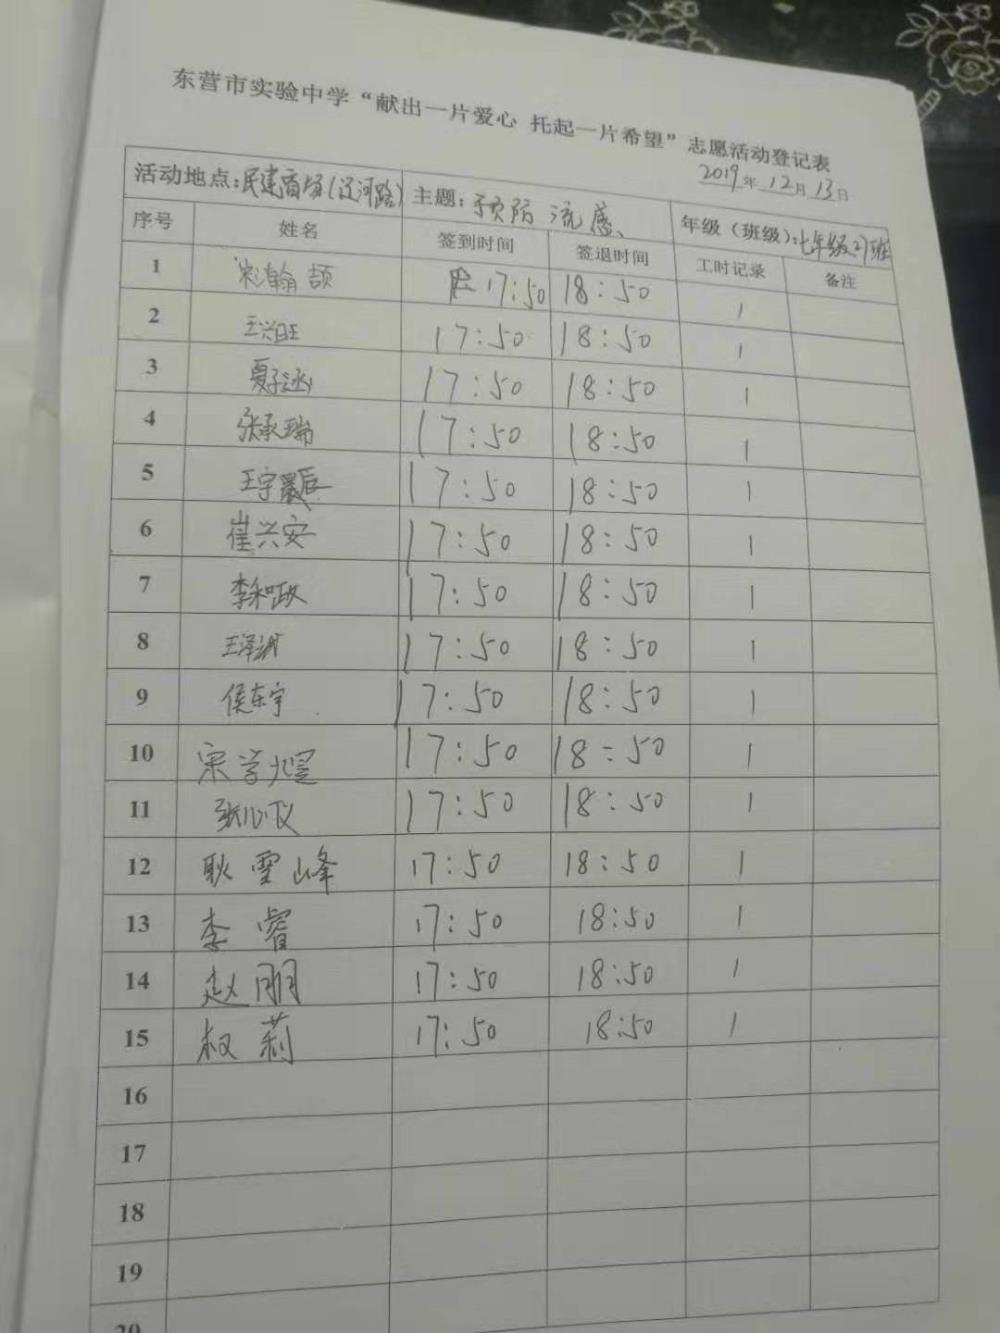 东营市实验中学“献出一片爱心 托起一片希望”志愿活动登记表
2019年12月13日
活动地点:民建商场(辽河路) 主题:预防流感、 年级(班级):七年级27班
序号 姓名 签到时间 签退时间 工时记录 备注
1 宋瀚颉 17:50 18:50 1
2 王兴旺 17:50 18:50 1
3 夏子涵 17:50 18:50 1
4 张承瑞 17:50 18:50 1
5 王宇宸 17:50 18:50 1
6 崔兴安 17:50 18:50 1
7 李和政 17:50 18:50 1
8 王泽诚 17:50 18:50 1
9 侯东宇 17:50 18:50 1
10 宋学 17:50 18:50 1
11 张心仪 17:50 18:50 1
12 耿雪峰 17:50 18:50 1
13 李睿 17:50 18:50 1
14 赵丽 17:50 18:50 1
15 权莉 17:50 18:50 1
16
17
18
19
20